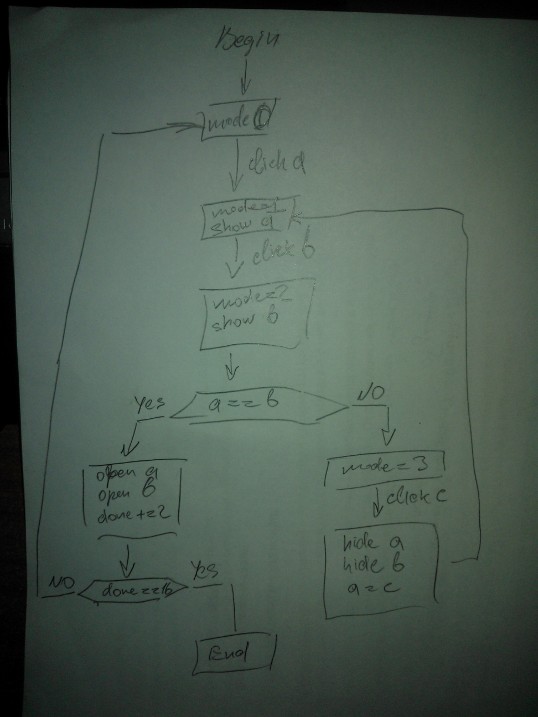 Begin
mode 0
click a
mode=1
show a
click b
mode=2
show b
a == b
yes
NO
open a
open b
done +=2
mode = 3
click c
hide a
hide b
a = c
NO
done==16
Yes
End